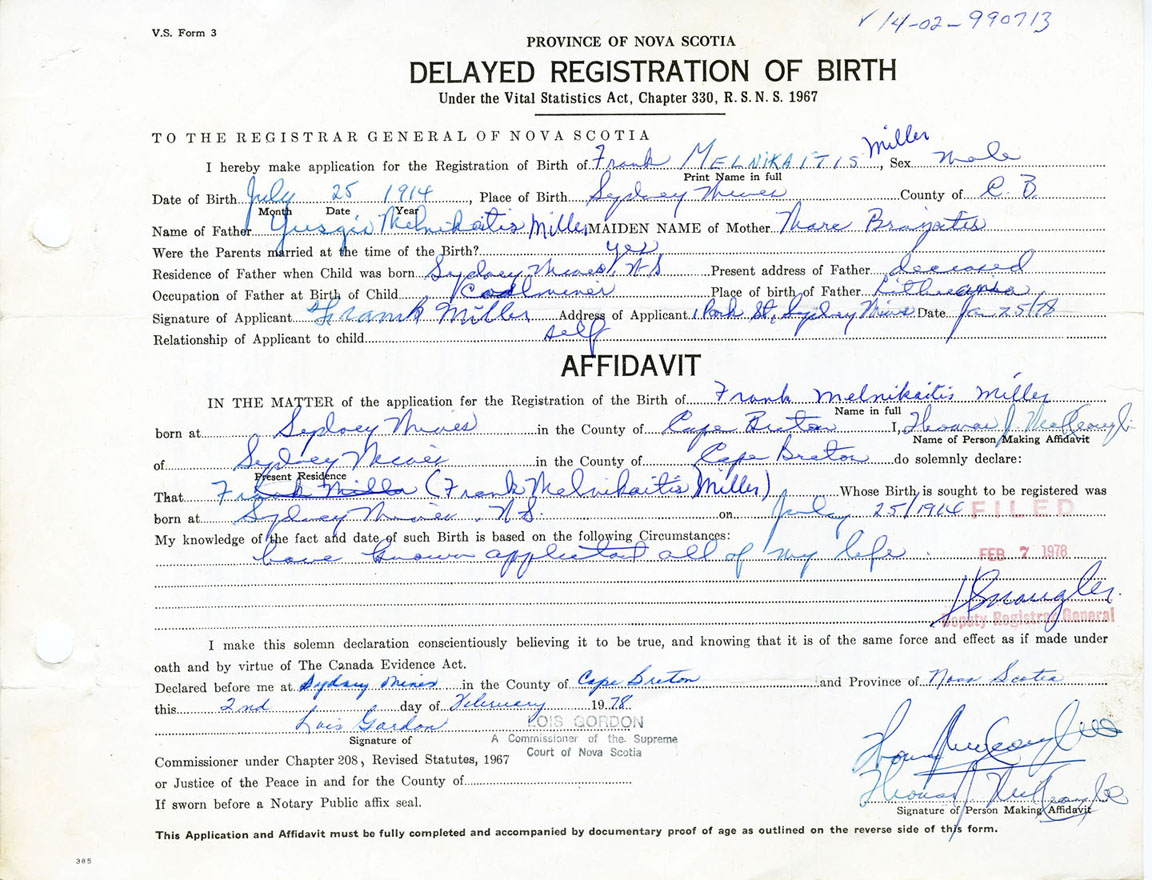 V.S. Form 3
√ 14-02-990713
PROVINCE OF NOVA SCOTIA
DELAYED REGISTRATION OF BIRTH
Under the Vital Statistics Act, Chapter 330, R.S.N.S. 1967
TO THE REGISTRAR GENERAL OF NOVA SCOTIA
I hereby make application for the Registration of Birth of Frank MELNIKAITIS Miller, Sex male
Print Name in full
Date of Birth July 25 1914, Place of Birth Sydney Mines County of C.B.
Month Date Year
Name of Father Yurgis Melnikaitis Miller MAIDEN NAME of Mother Mare
Were the Parents married at the time of the Birth? yes
Residence of Father when Child was born Sydney Mines, NS Present address of Father deceased
Occupation of Father at Birth of Child Coalminer Place of birth of Father Lithuania
Signature of Applicant Frank Miller Address of Applicant 1 Park St, Sydney Mines Date Jan 25/78
Relationship of Applicant to child self
AFFIDAVIT
IN THE MATTER of the application for the Registration of the Birth of Frank Melnikaitis Miller
Name in full
born at Sydney Mines in the County of Cape Breton I,
Name of Person Making Affidavit
of Sydney Mines in the County of Cape Breton do solemnly declare:
Present Residence
That Frank Miller (Frank Melnikaitis Miller) Whose Birth is sought to be registered was
born at Sydney Mines, NS on July 25/1914
FILED
My knowledge of the fact and date of such Birth is based on the following Circumstances:
have known applicant all of my life.
FEB 7 1978
Deputy Registrar General
I make this solemn declaration conscientiously believing it to be true, and knowing that it is of the same force and effect as if made under
oath and by virtue of The Canada Evidence Act.
Declared before me at Sydney Mines in the County of Cape Breton and Province of Nova Scotia
this 2nd day of February 1978
Lois Gordon
LOIS GORDON
Signature of
A Commissioner of the Supreme
Court of Nova Scotia
Commissioner under Chapter 208, Revised Statutes, 1967
or Justice of the Peace in and for the County of
If sworn before a Notary Public affix seal.
Signature of Person Making Affidavit
This Application and Affidavit must be fully completed and accompanied by documentary proof of age as outlined on the reverse side of this form.
385